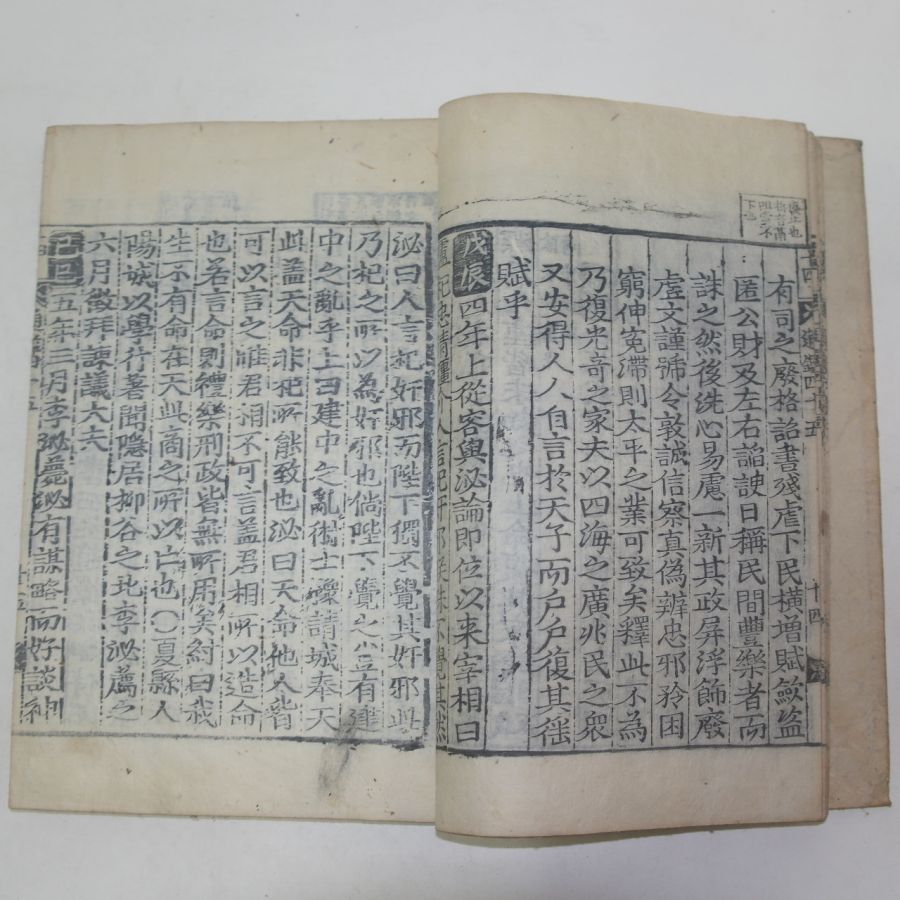 有司之廢格詔書殘虐下民橫增賦斂盜
匿公財及左右諂諛日稱民間豐樂者而
誅之然後洗心易慮一新其政屏浮飾廢
虛文謹號令敦誠信察真偽辨忠邪矜困
窮伸冤滯則太平之業可致矣釋此不為
乃復光奇之家夫以四海之廣兆民之衆
又安得人人自言於天子而戶戶復其徭
賦乎
戊辰四年上從容與泌論即位以来宰相曰
盧杞忠清彊介人言杞奸邪朕殊不覺其然
泌曰人言杞奸邪而陛下獨不覺其奸邪此
乃杞之所以為奸邪也倘陛下覺之豈有建
中之亂乎上曰建中之亂術士豫請城奉天
此盖天命非杞所能致也泌曰天命他人皆
可以言之唯君相不可言盖君相所以造命
也若言命則禮樂刑政皆無所用矣紂曰我
生不有命在天此商之所以亡也○夏縣人
陽城以學行著聞隱居柳谷之北李泌薦之
六月徵拜諫議大夫
己巳五年三月李泌薨泌有謀略而好談神
十四